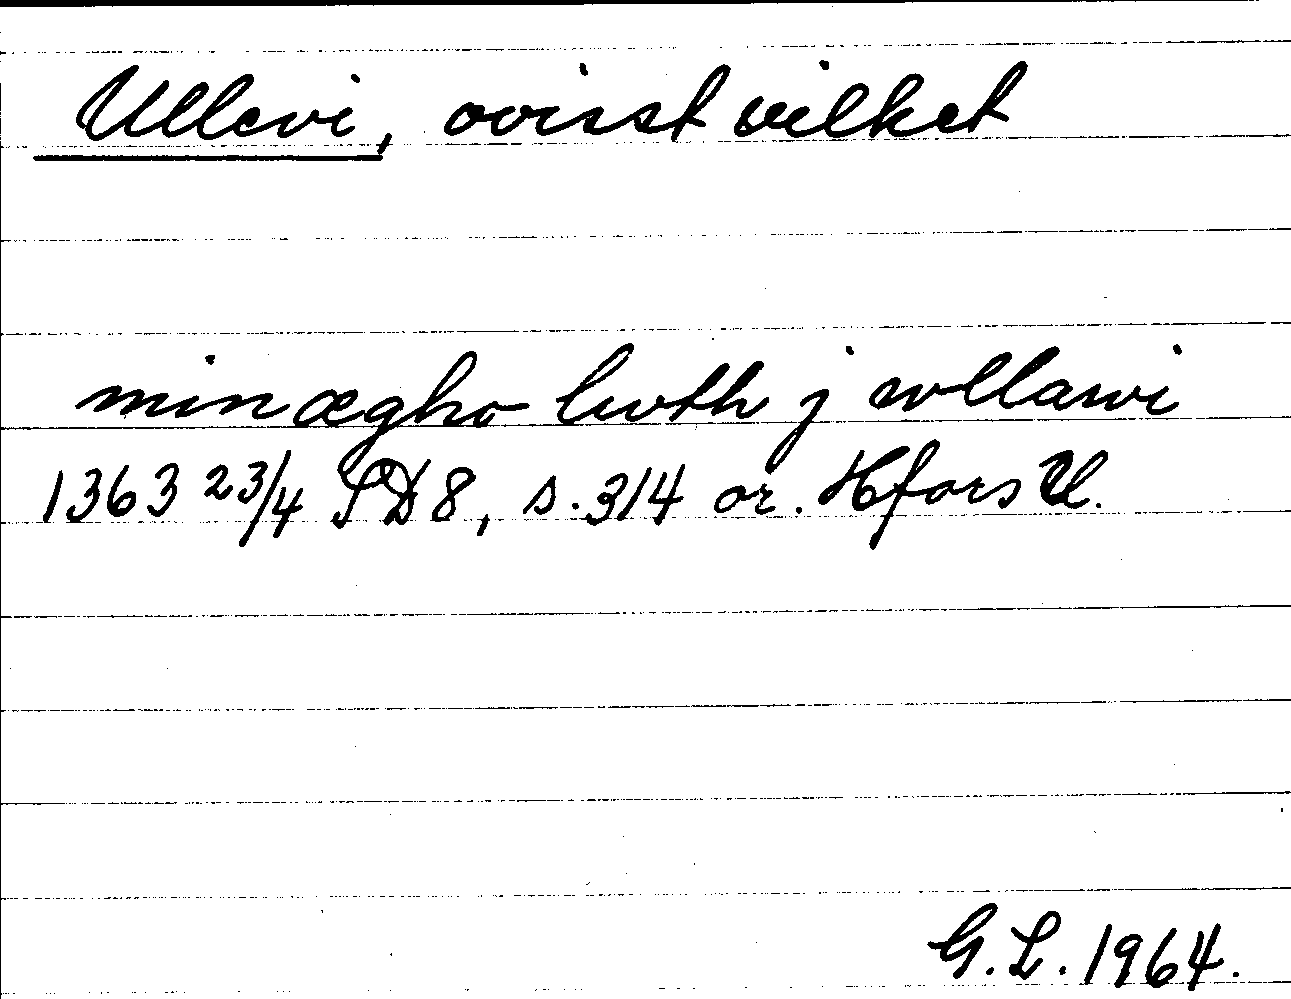 Ullevi, ovisst vilket
min ægho lwth j wllawi
1363 23/4 SD 8, s. 314 or. Hfors U.
G. L. 1964.